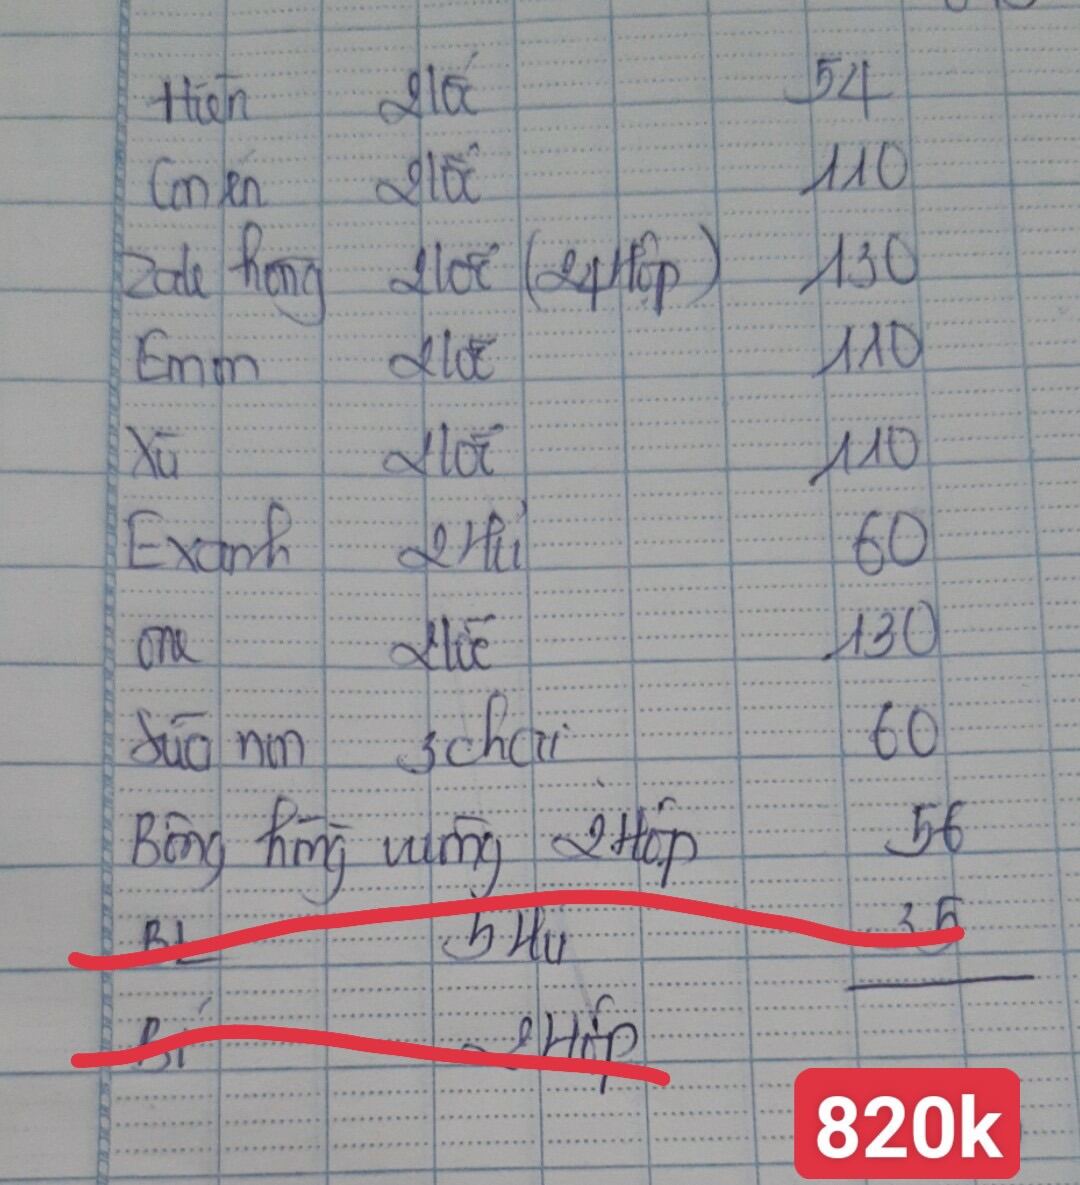 Hiền 2 lốc 54
Con én 2 lốc 110
Zale hồng 2 lốc (24 Hộp) 130
Emm 2 lốc 110
Xũ 2 lốc 110
Exanh 2 Hủ 60
one 2 lốc 130
Sữa non 3 chai 60
Bông hồng vừng 2 Hộp 56
BL 5 Hủ 35
Bí 2 Hộp
820k